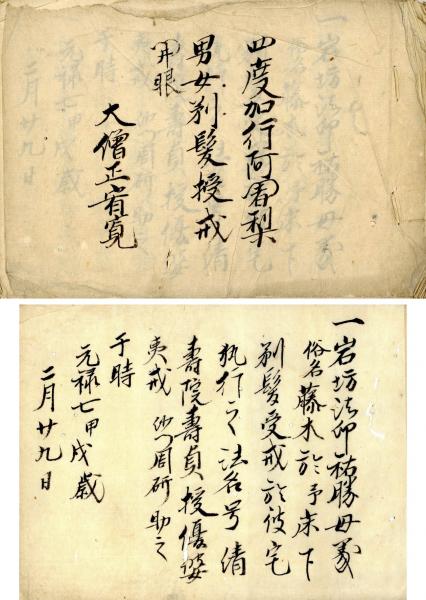 四度加行阿闍梨
男女剃髪授戒
開眼
大僧正宥寛
一岩坊法印祐勝母義
俗名藤木於予床下
剃髪受戒於彼宅
執行之法名号清
壽院壽貞授優婆
夷戒 沙門周研助之
于時
元禄七甲戌歳
二月廿九日